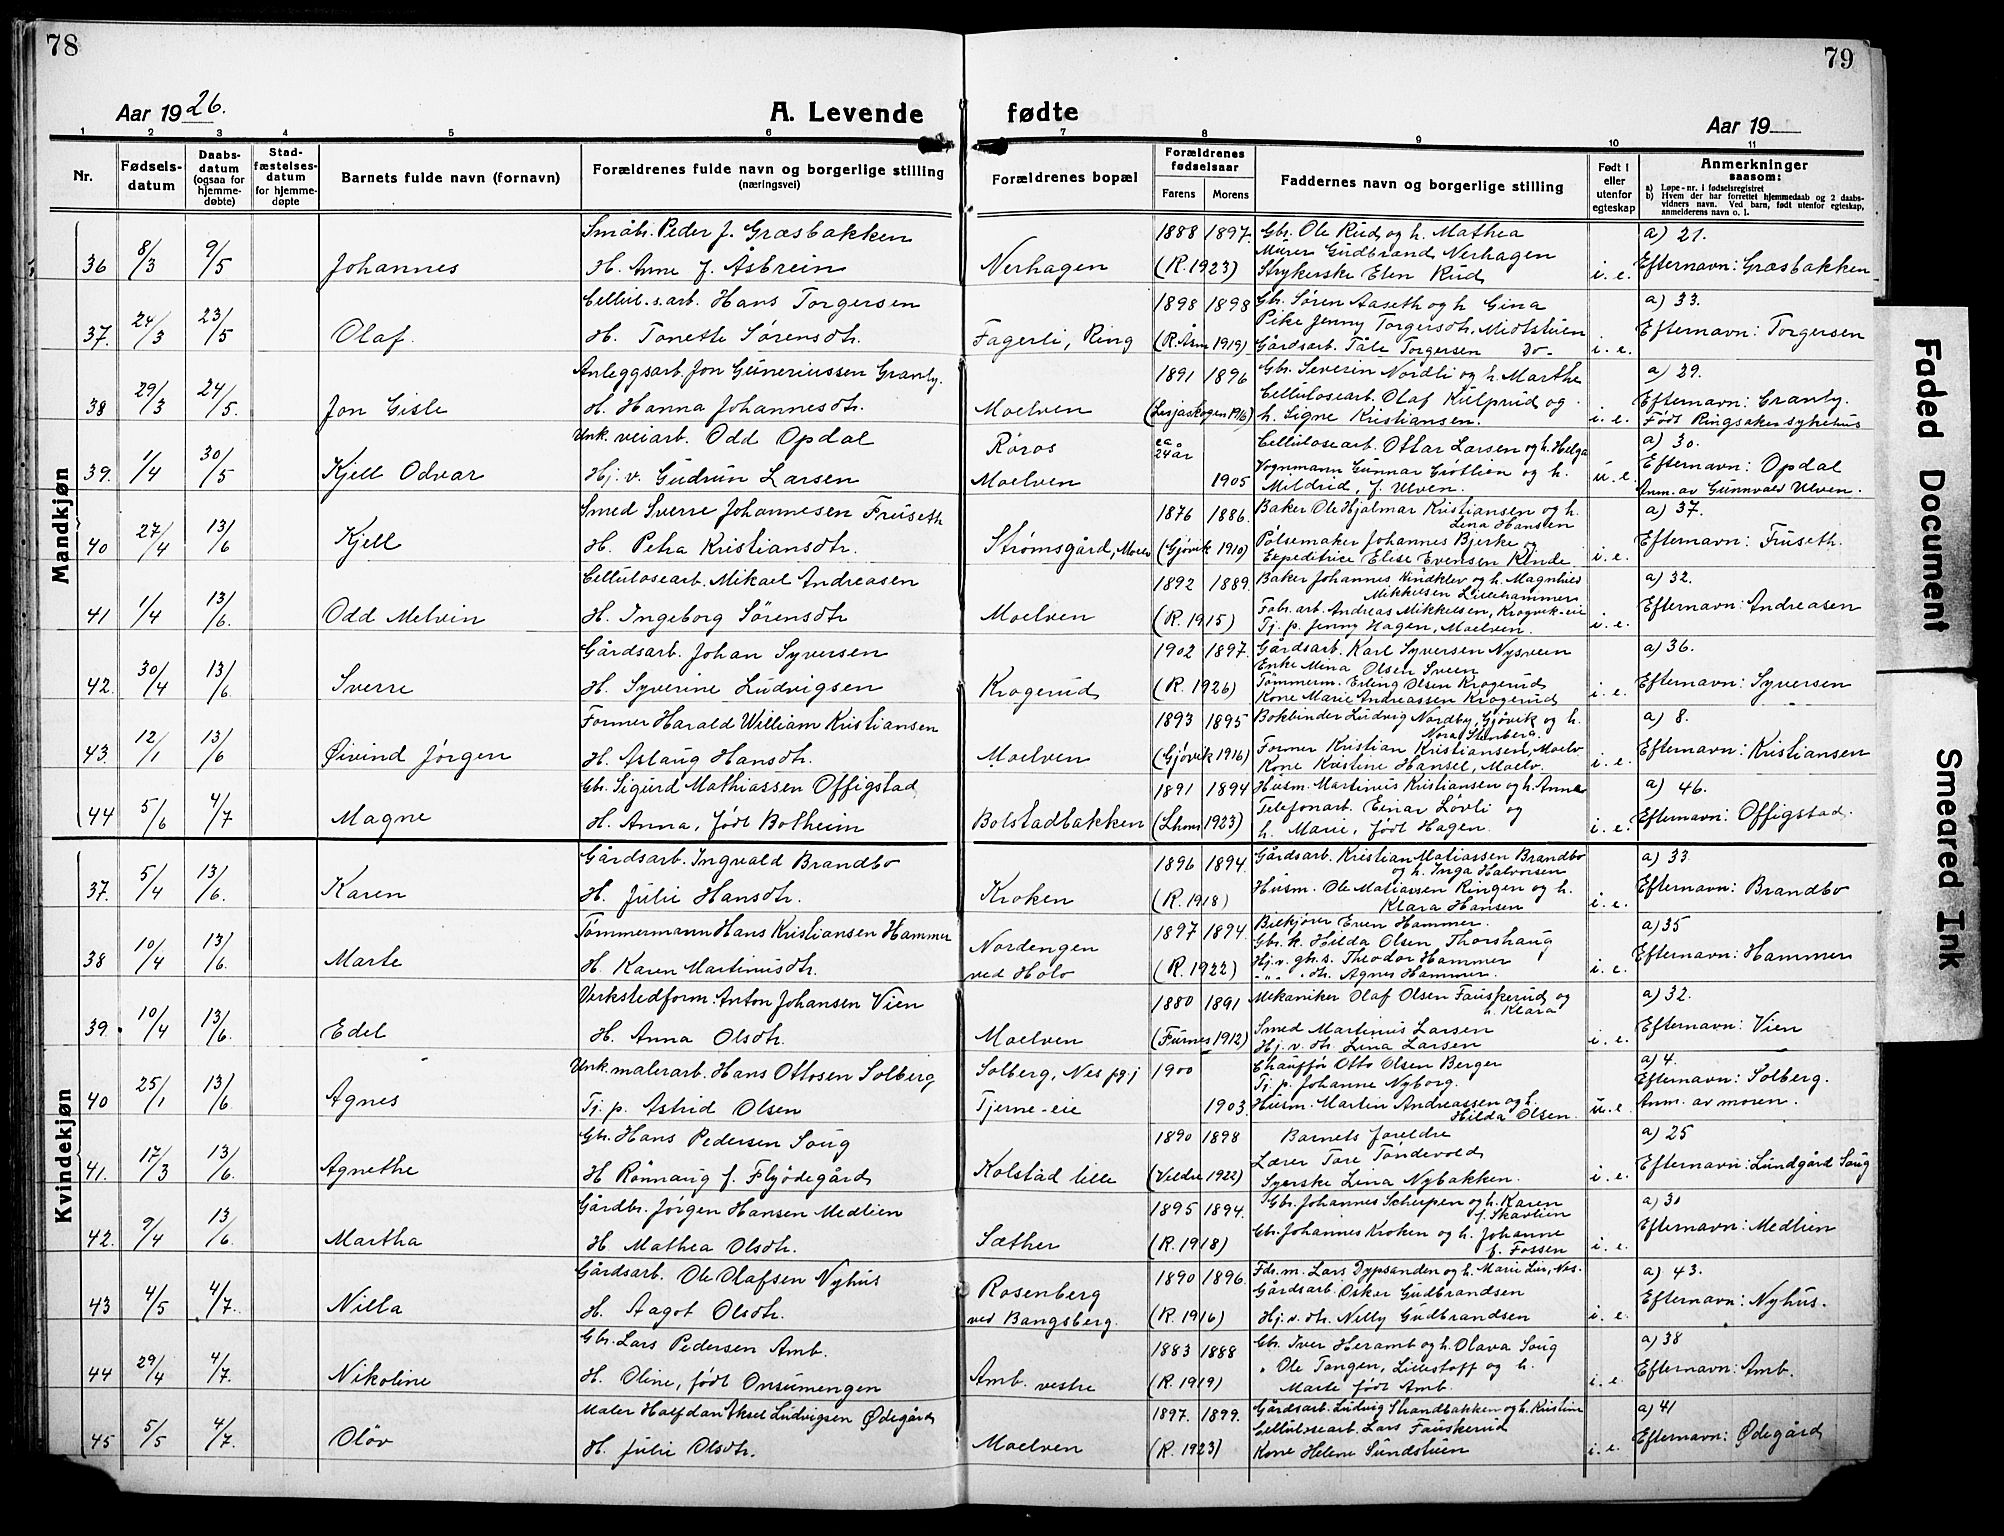 78
79
Aar 1926.
A. Levende fødte
Aar 19
1 2 3 4 5 6 7 8 9 10 11
Nr.
Fødsels-datum
Daabs-datum (ogsaa for hjemme-døbte)
Stad-fæstelses-datum for hjemme-døpte
Barnets fulde navn (fornavn)
Forældrenes fulde navn og borgerlige stilling (næringsvei)
Forældrenes bopæl
Forældrenes fødselsaar
Farens Morens
Faddernes navn og borgerlige stilling
Født i eller utenfor egteskap
Anmerkninger saasom:
a) Løpe-nr. i fødselsregistret
b) Hvem der har forrettet hjemmedaab og 2 daabs-vidners navn. Ved barn, født utenfor egteskap, anmelderens navn o. l.
Mandkjøn
Småbr. Peder J. Græsbakken 1888 1897. Gbr. Ole Rud og h. Mathea a) 21.
36 8/3 9/5 Johannes H. Anne f. Åsbrein Nerhagen (R. 1923) Murer Gudbrand Nerhagen
Strykerske Elen Rud i. e. Efternavn: Græsbakken
Cellul.s.arb. Hans Torgersen 1898 1898 Gbr. Søren Aaseth og h Gina a) 33.
37. 24/3 23/5 Olaf. H. Tonette Sørensdtr. Fagerli, Ring (R. Åsm 1919) Pike Jenny Torgersdtr. Midtstuen
Gårdsarb. Tåle Torgersen Do- i. e. Efternavn: Torgersen
Anleggsarb. Jon Guneriussen Granly. 1891 1896 Gbr. Severin Nordli og h. Marthe a) 29.
38 29/3 24/5. Jon Gisle H. Hanna Johannesdtr. Moelven (Lesjaskogen 1916) Cellulosearb. Olaf Kulprud og
h. Signe Kristiansen. i. e. Efternavn: Granly.
Født Ringsaker sykehus
Unk. veiarb. Odd Opdal Røros ca. 24 år Cellulosearb. Ottar Larsen og h. Helga a) 30.
39. 1/4 30/5 Kjell Odvar Hj. v. Gudrun Larsen Moelven 1905 Vognmann Gunnar Grøtlien og h.
Mildrid, f. Ulven. u. e. Efternavn: Opdal
Anm. av Gunnvald Ulven.
Smed Sverre Johannesen Fruseth 1876 1886. Baker Ole Hjalmar Kristiansen og h.
Lina Hansen a) 37.
40 27/4 13/6 Kjell H. Petra Kristiansdtr. Strømsgård, Moelv (Gjøvik 1910) Pølsemaker Johannes Bjerke og
Expeditrice Elise Evensen Kinde i. e. Efternavn: Fruseth.
Cellulosearb. Mikael Andreasen 1892 1889. Baker Johannes Kindklev og h. Magnhild
Mikkelsen Lillehammer a) 32.
41 1/4 13/6. Odd Melvin H. Ingeborg Sørensdtr Moelven (R. 1915) Fabr. arb. Andreas Mikkelsen, Krogvik-eie
Tj. p. Jenny Hagen, Moelven. i. e. Efternavn: Andreasen
Gårdsarb. Johan Syversen 1902 1897. Gårdsarb. Karl Syversen Nysveen a) 36.
42. 30/4 13/6. Sverre H. Syverine Ludvigsen Krogerud (R. 1926) Enke Mina Olsen Sveen
Tømmerm. Erling Olsen Krogerud
Kone Marie Andreassen Krogerud i. e. Efternavn: Syversen
Former Harald William Kristiansen 1893 1895 Bokbinder Ludvig Nordby, Gjøvik og h.
Nora Stenberg. a) 8.
43. 12/1 13/6 Øivind Jørgen H. Aslaug Hansdtr. Moelven (Gjøvik 1916) Former Kristian Kristiansen, Moelv
Kone Kristine Hansel, Moelv. i. e. Efternavn: Kristiansen
Gbr. Sigurd Mathiassen Offigstad 1891 1894 Husm. Martinus Kristiansen og h. Anna a) 46.
44 5/6 4/7 Magne H. Anna, født Botheim Bolstadbakken (Lhmr 1923) Telefonarb. Einar Løvli og
h. Marie, født Hagen. i. e. Efternavn: Offigstad.
Kvindekjøn
Gårdsarb. Ingvald Brandbo 1896 1894. Gårdsarb. Kristian Matiassen Brandbo
og h. Inga Halvorsen a) 33
37. 5/4 13/6. Karen H. Julie Hansdtr. Kroken (R. 1918) Husm. Ole Matiassen Ringen og h.
Klara Hansen i. e. Efternavn: Brandbo
Tømmermann Hans Kristiansen Hammer 1897 1894. Bilkjører Even Hammer. a) 35
38 10/4 13/6. Marte H. Karen Martinusdtr. Nordengen ved Holo (R. 1922) Gbr. k. Hilda Olsen Thorshaug
Hj. v. gbr. s. Theodor Hammer
" " " dtr. Agnes Hammer. i. e. Efternavn: Hammer
Verkstedform. Anton Johansen Vien 1880 1891 Mekaniker Olaf Olsen Fauskerud og
h. Klara a) 32.
39. 10/4 13/6. Edel H. Anna Olsdtr. Moelven (Furnes 1912) Smed Martinus Larsen
Hj. v. dtr. Lina Larsen i. e. Efternavn: Vien
Unk. malerarb. Hans Ottosen Solberg Solberg, Nes pgj 1900 Chauffør Otto Olsen Berger a) 4.
40 25/1 13/6 Agnes Tj. p. Astrid Olsen Tjerne-eie 1903. Tj. p. Johanne Nyborg.
Husm. Martin Andreassen og h.
Hilda Olsen. u. e. Efternavn: Solberg.
Anm. av moren.
Gbr. Hans Pedersen Soug 1890 1898 Barnets foreldre a) 25
41. 17/3 13/6. Agnethe H Rønnaug f. Flyødegård Kolstad lille (Veldre 1922) Lærer Tore Tøndevold
Syerske Lina Nybakken. i. e. Efternavn: Lundgård Soug
Gårdbr. Jørgen Hansen Medlien 1895 1894. Gbr. Johannes Scherpen og h. Karen
f. Skavlien a) 30
42. 9/4 13/6. Martha H Mathea Olsdtr. Sæther (R. 1918) Gbr. Johannes Kroken og h. Johanne
f. Fossen i. e. Efternavn: Medlien
Gårdsarb. Ole Olafsen Nyhus 1890 1896. Fds. m. Lars Dypsanden og h. Marie Lier, Nes. a) 43.
43 4/5 4/7. Nilla H. Aagot Olsdtr. Rosenberg ved Bangsberg. (R. 1916) Gårdsarb. Osker Gudbrandsen
Hj. v. dtr. Nelly Gudbrandsen i. e. Efternavn: Nyhus.
Gbr. Lars Pedersen Amb. 1883 1888 Gbr. Iver Heramb og h. Olava Soug a) 38
44 29/4 4/7. Nikoline H. Oline, født Onsumengen Amb. vestre (R. 1919) " Ole Tangen, Lillestoff og h.
Marte født Amb. i. e. Efternavn: Amb.
Maler Halfdan Aksel Ludvigsen Ødegård 1897. 1899. Gårdsarb. Ludvig Strandbakken og h. Kristine a) 41
45 5/5 4/7. Oløv H. Julie Olsdtr. Moelven (R. 1923) Cellulosearb. Lars Fauskerud
Kone Helene Sundstuen i. e. Efternavn: Ødegård
Faded Document
Smeared Ink